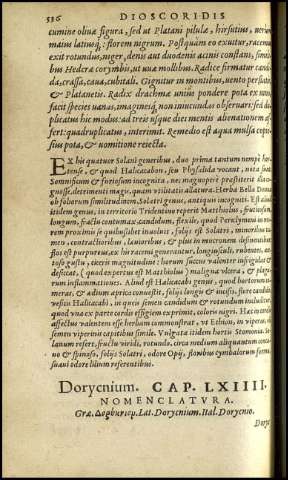 536 DIOSCORIDIS
cumine oliuæ figura, sed ut Platani pilulæ, hirsutius, uerum
maius latiusq; : florem nigrum. Postquàm eo exuitur, racemus
exit rotundus, niger, denis aut duodenis acinis constans, similibus
Hederæ corymbis, ut uuæ mollibus. Radice nititur candida
da, crassa, caua, cubitali. Gignitur in montibus, uento perflatis
& Platanetis. Radix drachmæ unius pondere pota ex uino
facit species uanas, imagines non iniucundas obseruari: sed duplicatus
plicatus hic modus: ad tres usque dies mentis alienationem affert
fert: quadruplicatus, interimit. Remedio est aqua mulsa copiosius
sius pota, & uomitione reiecta.
EX his quatuor Solani generibus, duo prima tantum nempè hortense
tense, & quod Halicacabon, seu Physalida vocant, nota sunt
Somnificum & furiosum incognita. nec magnopere præstiterit diagnosse
gnosse, detrimenti magis, quàm vtilitatis allatura. Herba Bella Donna
ob folium similitudinem, Solatri genus, antiquis incognitum. Est aliud
itidem genus, in territorio Tridentino reperit Matthiolus, fruticosum,
longum, fractu contumax, flexile, quod Periclymeni in morem
rem proximis se quibuslibet inuoluit, folijs est Solatri, minoribus tamen
men, contractioribus, lauioribus, & plus in mucronem desinentibus
flos est purpureus, ex hoc racemi generantur, longiusculi, rubentes,
toso gustu, ciceris magnitudine: horum succus valenter insigulat &
desiccat, (quod expertus est Matthiolus) maligna vlcera, & plagarum
rum inflammationes. Aliud est Halicacabi genus, quod hortorum umeras
meras, & ædium aprico conuestit, folijs longis & incisis, flore candido
vesicis Halicacabi, in queis semen candidum & rotundum includitur,
quod vna ex parte cordis effigiem exprimit, coloris nigri. Hæc in cordis
affectus valentem esse herbam commonstrat, vt Echion, in viperas,
semen viperinis capitibus simile. Vulgata itidem hortis Stomonia Solanum
lanum refert, fructu viridi, rotundo, circa medium aliquantum contracto
no & spinoso, folijs Solatri, odore Opij, floribus cymbalorum forma,
suaui odore lilium referentibus.
Dorycnium. CAP. LXIIII.
NOMENCLATVRA.
Græ. Δορύκνιον. Lat. Dorycnium. Ital. Dorycnio.
Dory